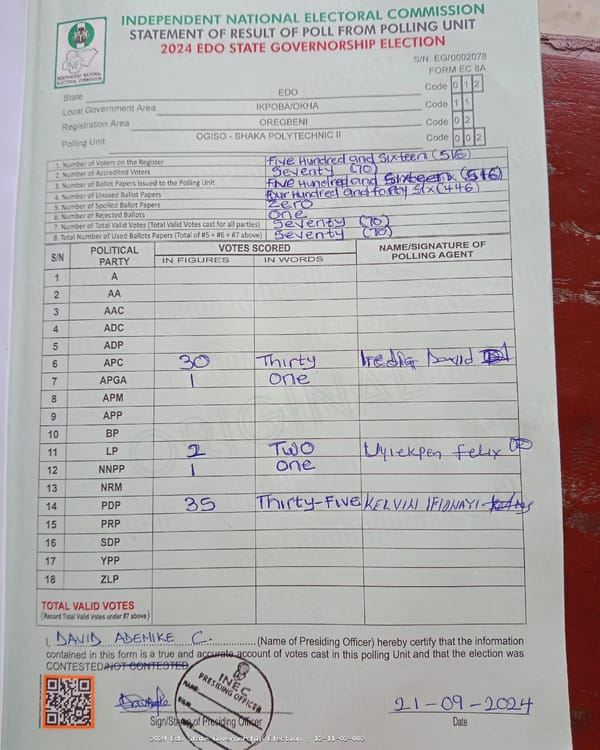 INDEPENDENT NATIONAL ELECTORAL COMMISSION
STATEMENT OF RESULT OF POLL FROM POLLING UNIT
2024 EDO STATE GOVERNORSHIP ELECTION
INEC
INDEPENDENT NATIONAL ELECTORAL COMMISSION
S/N: EG/0002078
FORM EC 8A
State EDO Code 0 1 2
Local Government Area IKPOBA/OKHA Code 1 1
Registration Area OREGBENI Code 0 2
Polling Unit OGISO - SHAKA POLYTECHNIC II Code 0 0 2
1. Number of Voters on the Register Five Hundred and Sixteen (516)
2. Number of Accredited Voters Seventy (70)
3. Number of Ballot Papers Issued to the Polling Unit Five Hundred and Sixteen (516)
4. Number of Unused Ballot Papers Four Hundred and forty Six (446)
5. Number of Spoiled Ballot Papers Zero
6. Number of Rejected Ballots One
7. Number of Total Valid Votes (Total Valid Votes cast for all parties) Seventy (70)
8. Total Number of Used Ballots Papers (Total of #5 + #6 + #7 above) Seventy (70)
S/N POLITICAL PARTY VOTES SCORED NAME/SIGNATURE OF POLLING AGENT
IN FIGURES IN WORDS
1 A
2 AA
3 AAC
4 ADC
5 ADP
6 APC 30 Thirty David
7 APGA 1 One
8 APM
9 APP
10 BP
11 LP 2 Two Uyiekpen Felix
12 NNPP 1 One
13 NRM
14 PDP 35 Thirty-Five KELVIN IFIONAYI
15 PRP
16 SDP
17 YPP
18 ZLP
TOTAL VALID VOTES
(Record Total Valid Votes under #7 above)
ORIGINAL
I, DAVID ADEMIKE C. (Name of Presiding Officer) hereby certify that the information
contained in this form is a true and accurate account of votes cast in this polling Unit and that the election was
CONTESTED/NOT CONTESTED.
INEC
PRESIDING OFFICER
NAME
SIGN
21-09-2024
Sign/Stamp of Presiding Officer Date
2024 Edo State Governorship Election : 12-11-02-002